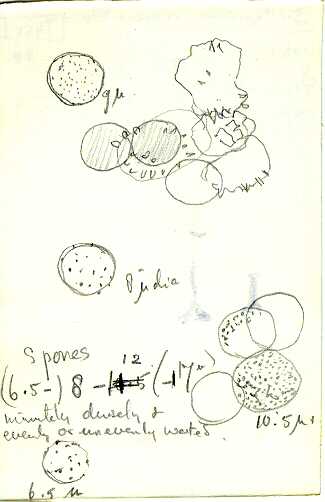 9µ
8µ dia
Spores
12
(6.5-) 8 - (-17µ)
minutely densely &
evenly or unevenly warted.
10.5µ
6.5 µ